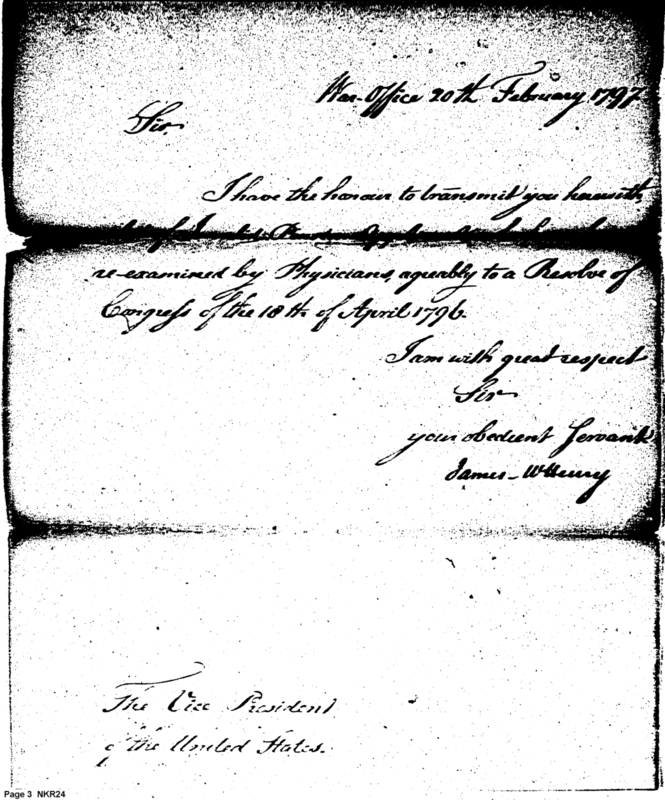 War-Office 20th February 1797
Sir
I have the honour to transmit you herewith
re-examined by Physicians, agreably to a Resolve of
Congress of the 18th of April 1796.
I am with great respect
Sir
your obedient Servant
James McHenry
The Vice President
of the United States.
Page 3 NKR24